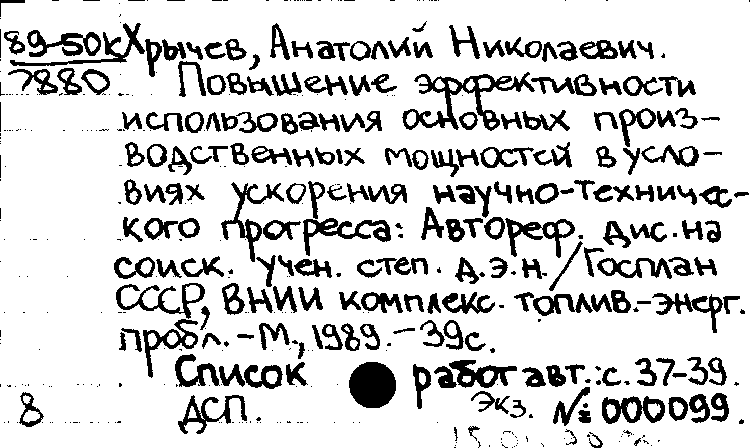 89-50к Хрычев, Анатолий Николаевич.
7880 Повышение эффективности
использования основных произ-
водственных мощностей в усло-
виях ускорения научно-техничес-
кого прогресса: Автореф. дис. на
соиск. учен. степ. д.э.н. / Госплан
СССР, ВНИИ комплекс. топлив.-энерг.
пробл. - М., 1989. - 39с.
Список работ авт.: с. 37-39.
8 ДСП. Экз. № 000099.